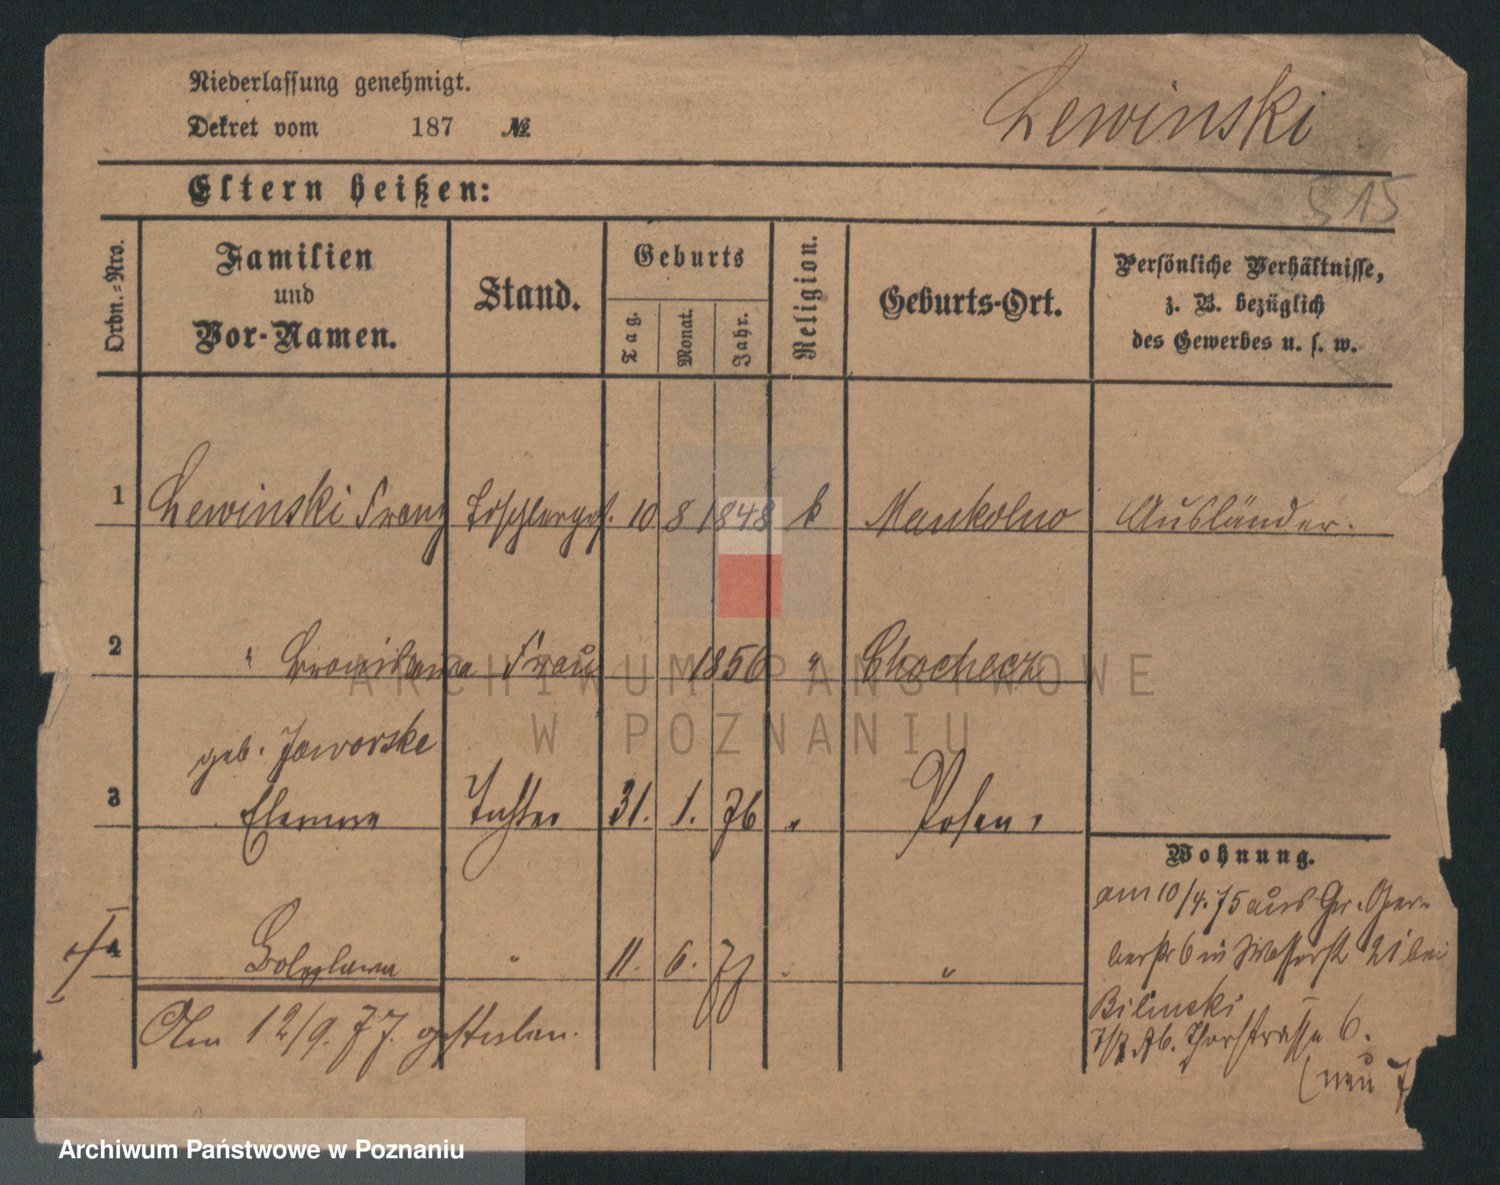 Niederlassung genehmigt.
Dekret vom 187 №
Lewinski
S 15
Eltern heißen:
Ordn.-Nro.
Familien und Vor-Namen.
Stand.
Geburts
Tag.
Monat.
Jahr.
Religion.
Geburts-Ort.
Persönliche Verhältnisse,
z. B. bezüglich
des Gewerbes u. s. w.
1 Lewinski Franz Tischlerges. 10 8 1848 k Mankolno Ausländer.
2 " Bronislawa Frau 1856 " Chochecz
geb. Jaworske
3 Tochter 31. 1. 76 " Posen
4 Boleslawa " 11. 6. 77 " "
Am 12/9. 77. gestorben.
Wohnung.
am 10/4. 75 aus Gr. Ger-
berstr 6 in Wasserstr 21 bei
Bilinski
7/7. 76. Thorstrasse 6.
(neu 7
ARCHIWUM PAŃSTWOWE
W POZNANIU
Archiwum Państwowe w Poznaniu